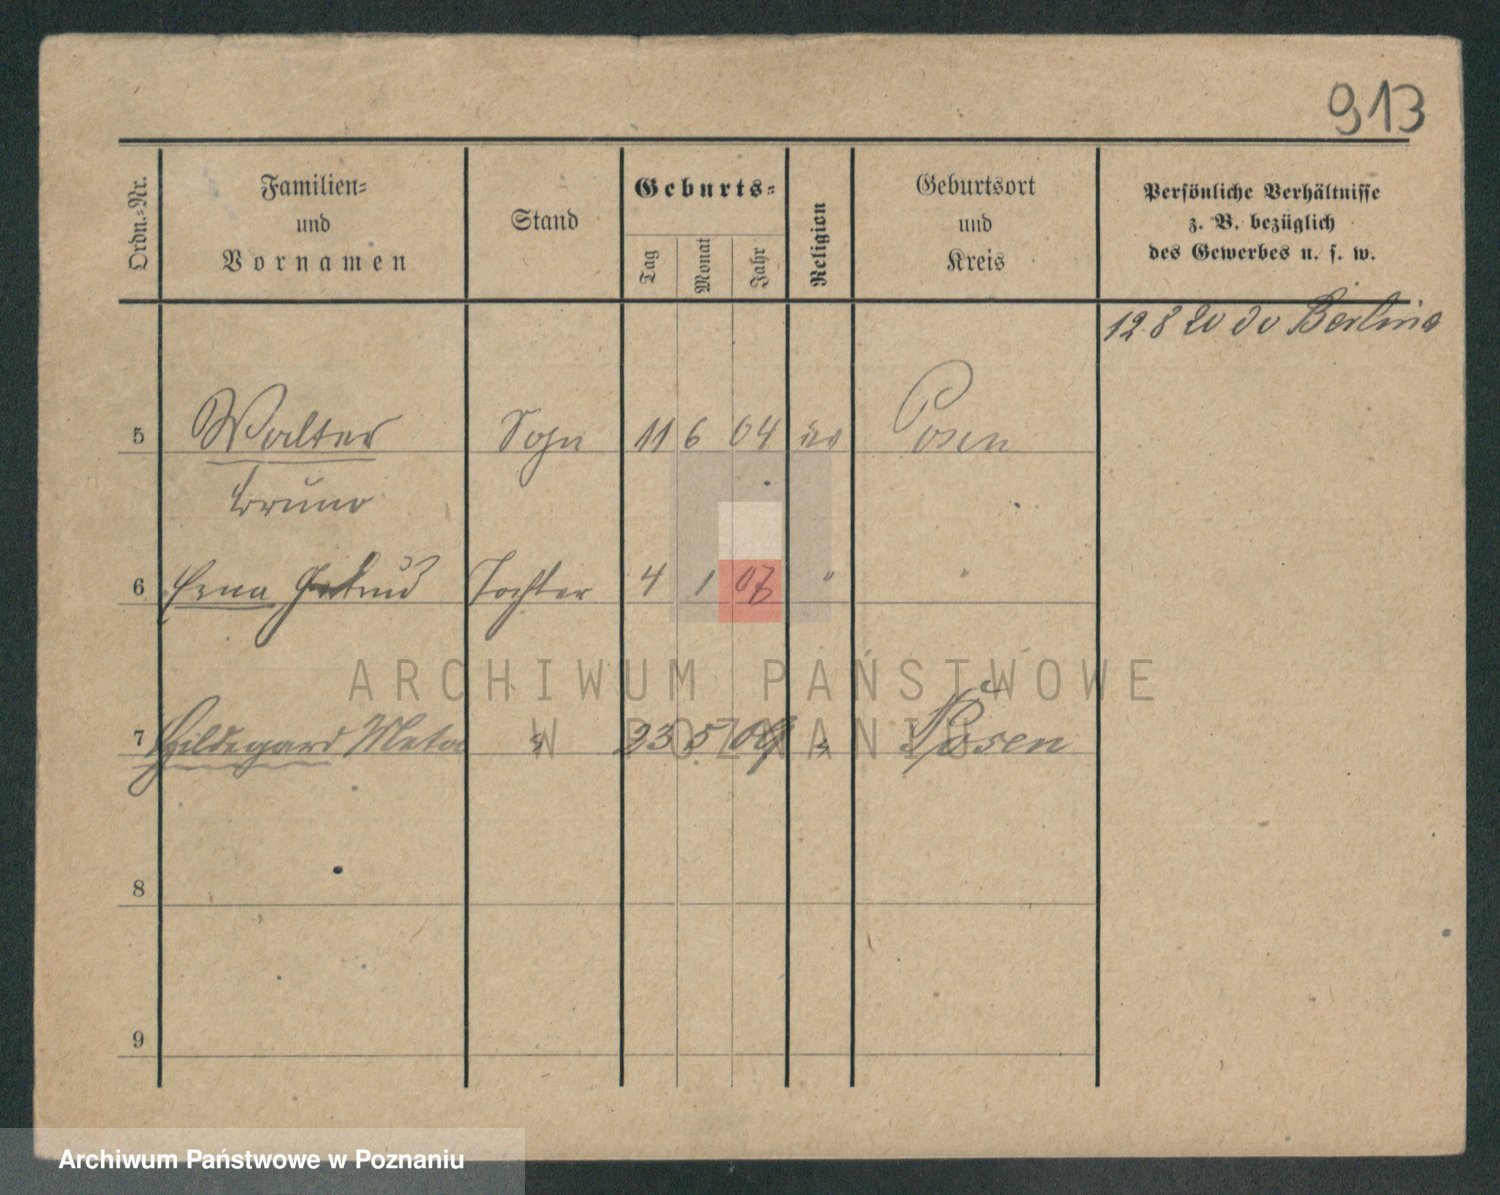 913
Ordn.-Nr.
Familien-
und
Vornamen
Stand
Geburts-
Tag
Monat
Jahr
Religion
Geburtsort
und
Kreis
Persönliche Verhältnisse
z. B. bezüglich
des Gewerbes u. s. w.
12 8 20 Berlin
5 Walter Sohn 11 6 04 Posen
Bruno
6 Erna Gertrud Tochter 4 1 07 " "
7 Hildegard Meta " 23 5 09 " Posen
8
9
ARCHIWUM PAŃSTWOWE
W POZNANIU
Archiwum Państwowe w Poznaniu